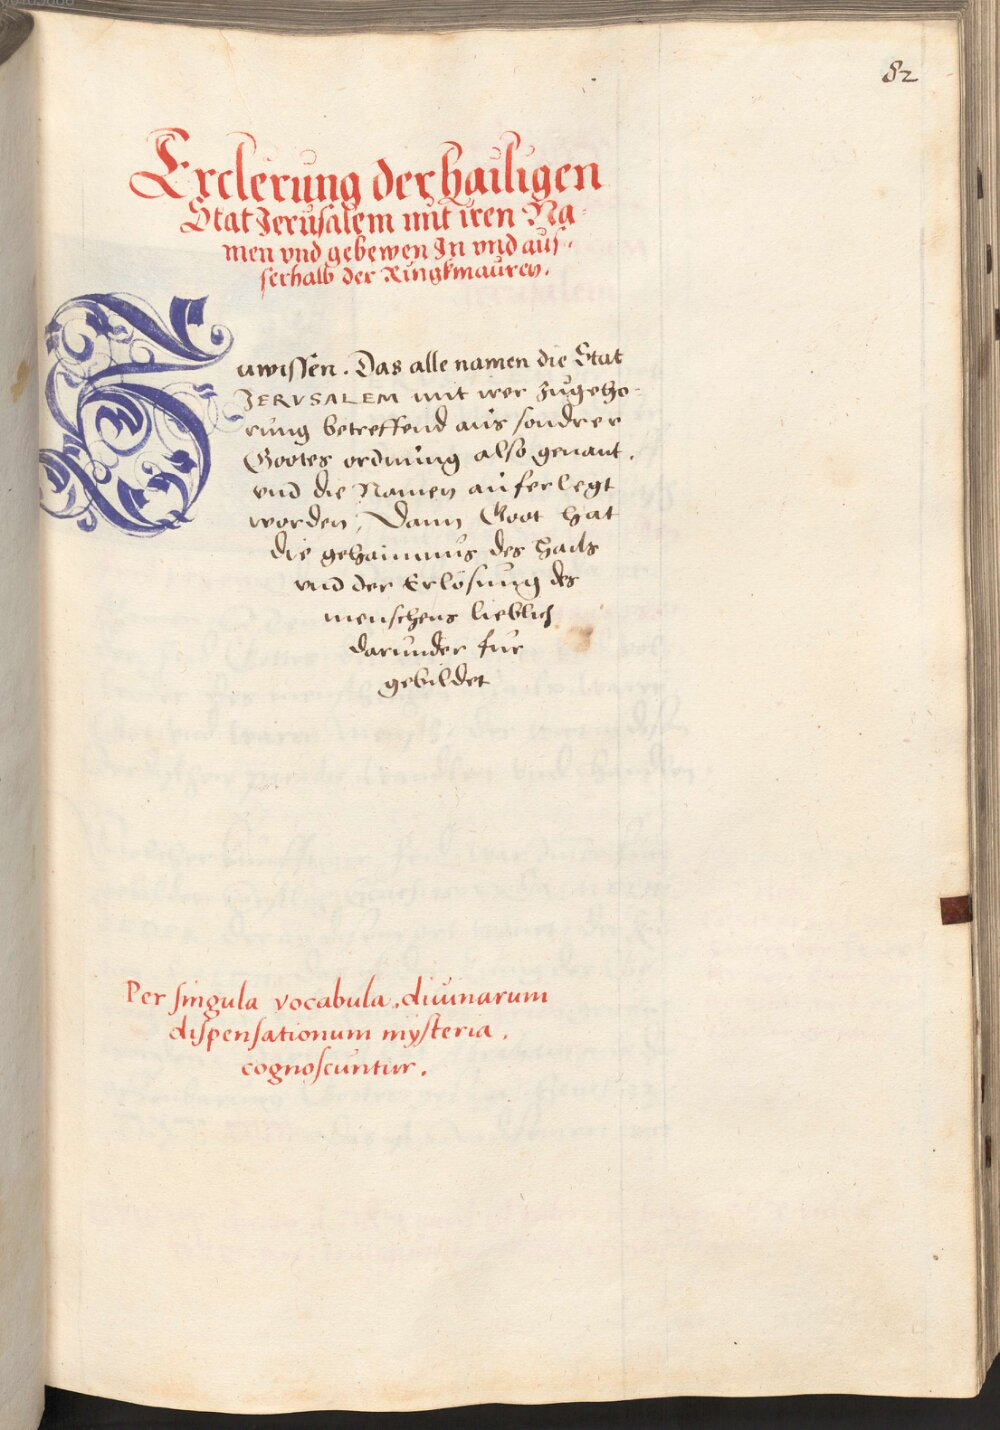 82
Erclerung der hailigen
Stat Jerusalem mit iren Na-
men vnd gebewen In vnd aus-
serhalb der Ringkmauren.
Zuwissen. Das alle namen die Stat
JERVSALEM mit irer zugeho-
rung betreffend aus sondrer
Gootes ordnung also genant.
vnd die Namen auferlegt
worden, Dann Goot hat
die gehaimnus des hails
vnd der Erlösung des
menschens lieblich
darunder fur
gebildet
Per singula vocabula, diuinarum
dispensationum mysteria.
cognoscuntur.